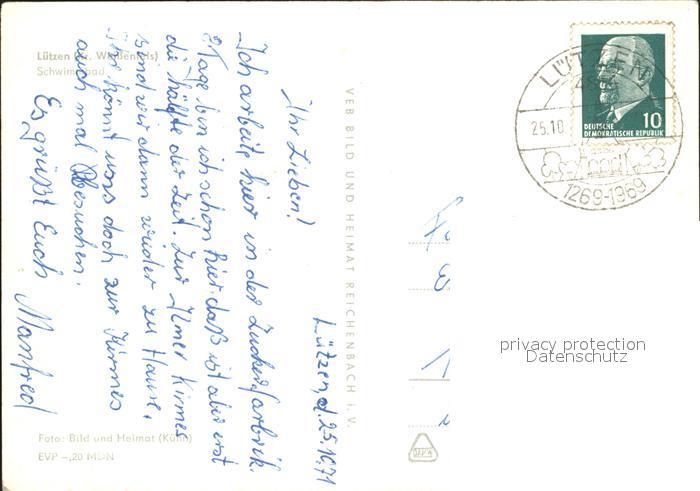 Lützen (Kr. Weißenfels)
Schwimmbad
Lützen, d. 25.10.71
Ihr Lieben!
Ich arbeite hier in der Zuckerfarbrik.
2 Tage bin ich schon hier. daß ist aber erst
die hälfte der Zeit. Zur Ilmer Kirmes
sind wir dann wieder zu Hause.
Ihr könnt uns doch zur Kirmes
auch mal Besuchen.
Es grüßt Euch
Manfred
Foto: Bild und Heimat (Kühn)
EVP –,20 MDN
VEB BILD UND HEIMAT REICHENBACH I. V.
LÜTZEN
25.10
1269-1969
10
DEUTSCHE
DEMOKRATISCHE REPUBLIK
privacy protection
Datenschutz